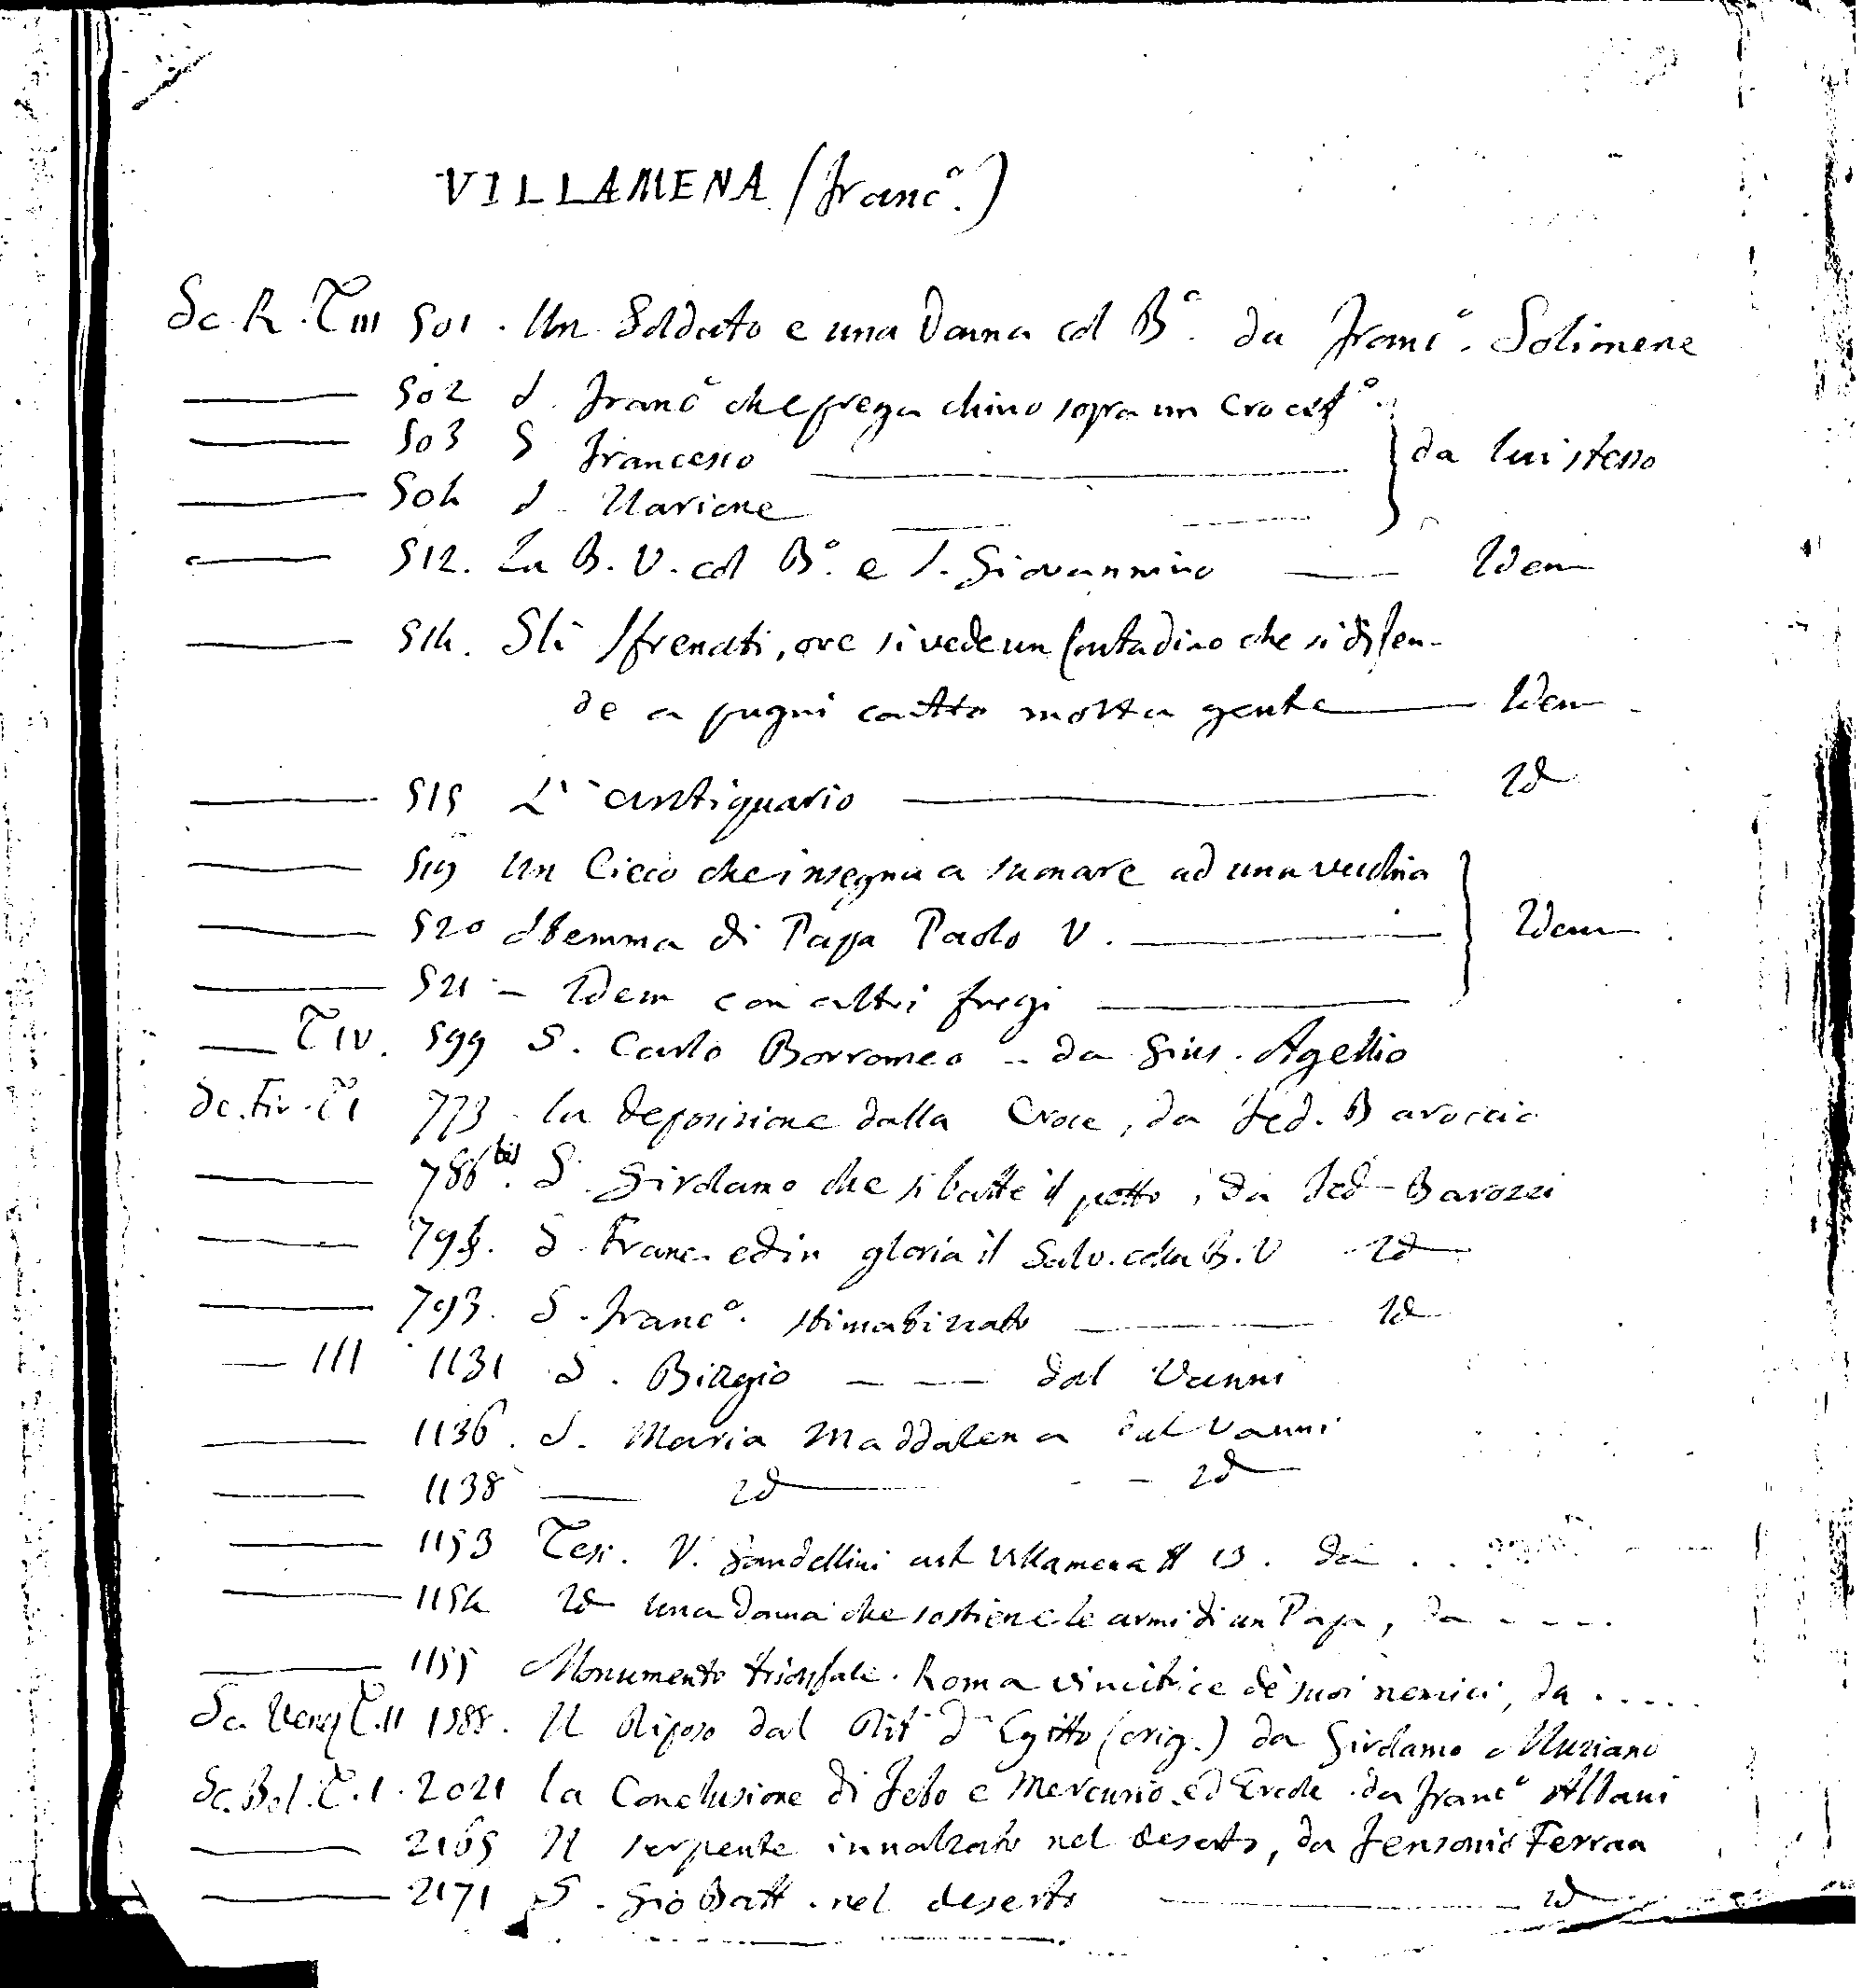 VILLAMENA (Franc.º)
Sc. R. T. III 501. Un Soldato e una Donna col B.º da Franc.º Solimene
502 S. Franc.º che prega chino sopra un Crocef.º
503 S. Francesco
da lui stesso
504 S. Ilarione
512. La B. V. col B.º e S. Giovannino Idem
514. Gli Sfrenati, ove si vede un Contadino che si difen-
de a pugni contro molta gente Idem
515 L'antiquario Id
519 Un Cieco che insegna a suonare ad una vecchia
520 Stemma di Papa Paolo V. Idem
521 - Idem con altri fregi
T IV. 599 S. Carlo Borromeo - da Gius. Agellio
Sc. Fir. T I 773 La deposizione dalla Croce, da Fed. Baroccio
786 bis. S. Girolamo che si batte il petto, da Fed. Barozzi
S. Franc. ed in gloria il Salv. colla B. V Id
793. S. Franc.º stimatizzato Id
III 1131 S. Biagio dal Vanni
1136. S. Maria Maddalena dal Vanni
1138 Id - Id
1153 Tesi. V. Gandellini art. Villamena # 13. da . .
1154 Id una donna che sostiene le armi di un Papa, da . . . .
1155 Monumento trionfale. Roma vincitrice de' suoi nemici, da . . . . .
Sc. Venez T. II 1588. Il Riposo dal Rit.º d'Egitto (orig.) da Girolamo Muziano
Sc. Bol. T. I. 2021 La Conclusione di Febo e Mercurio ed Ercole da Franc.º Albani
2165 Il serpente innalzato nel deserto, da Fenzonio Ferraa
2171 S. Gio Batt. nel deserto Id